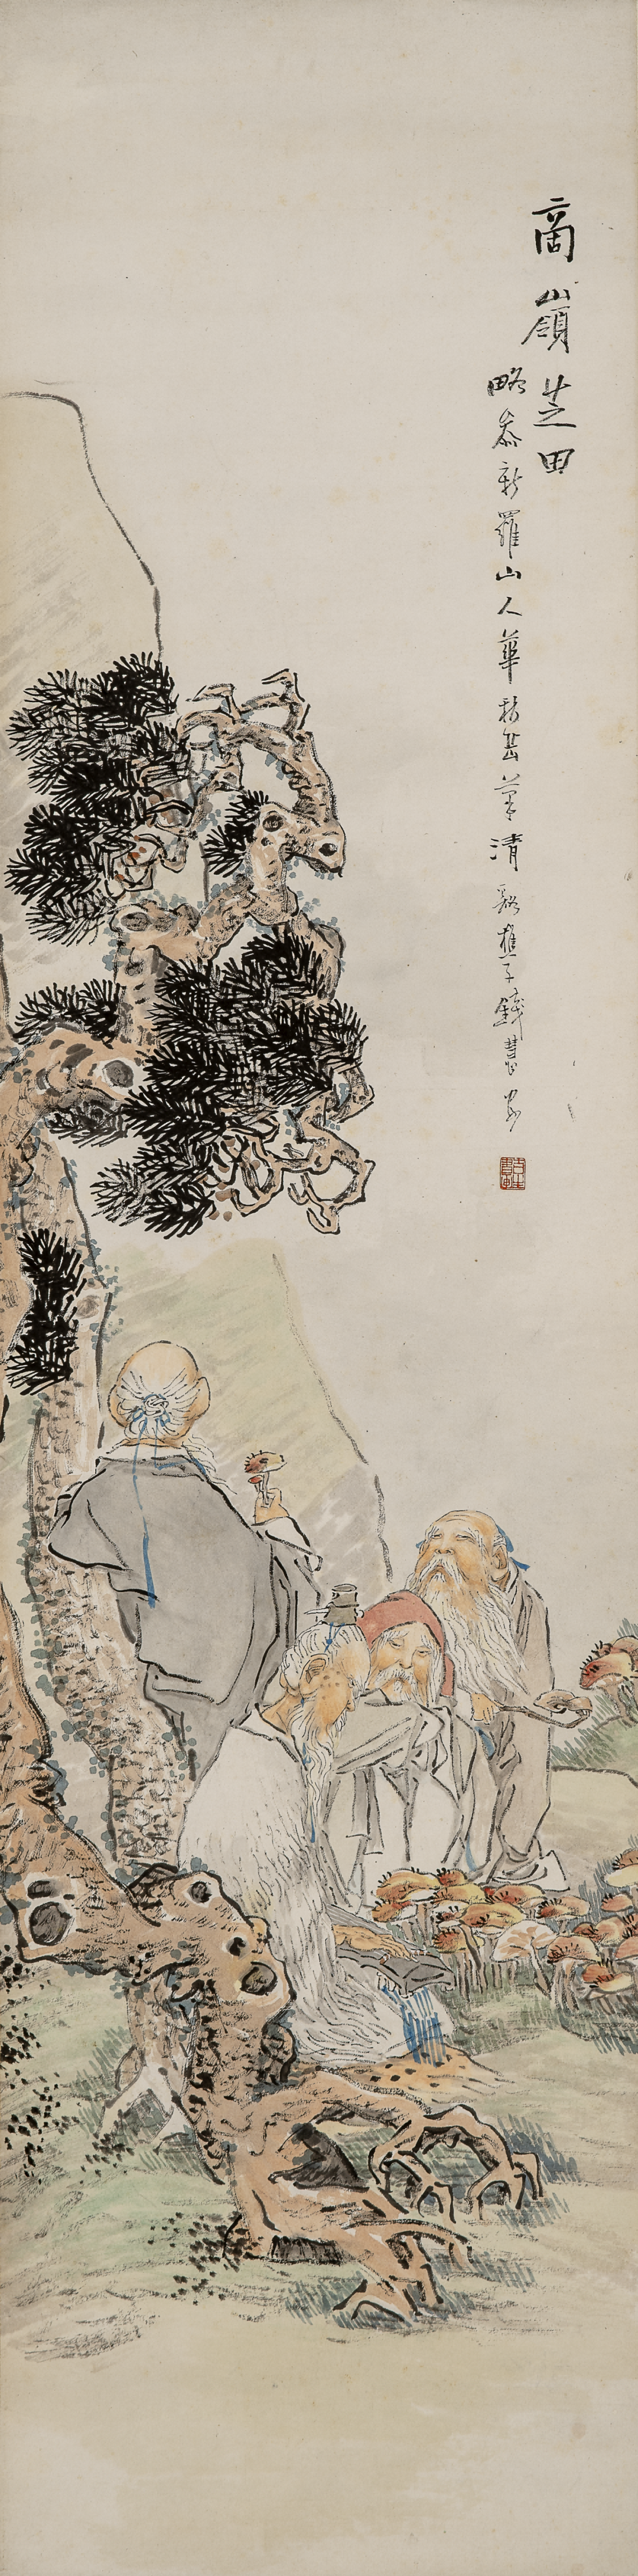 商嶺芝田
略叅新羅山人華秋岳筆清谿樵子錢慧安